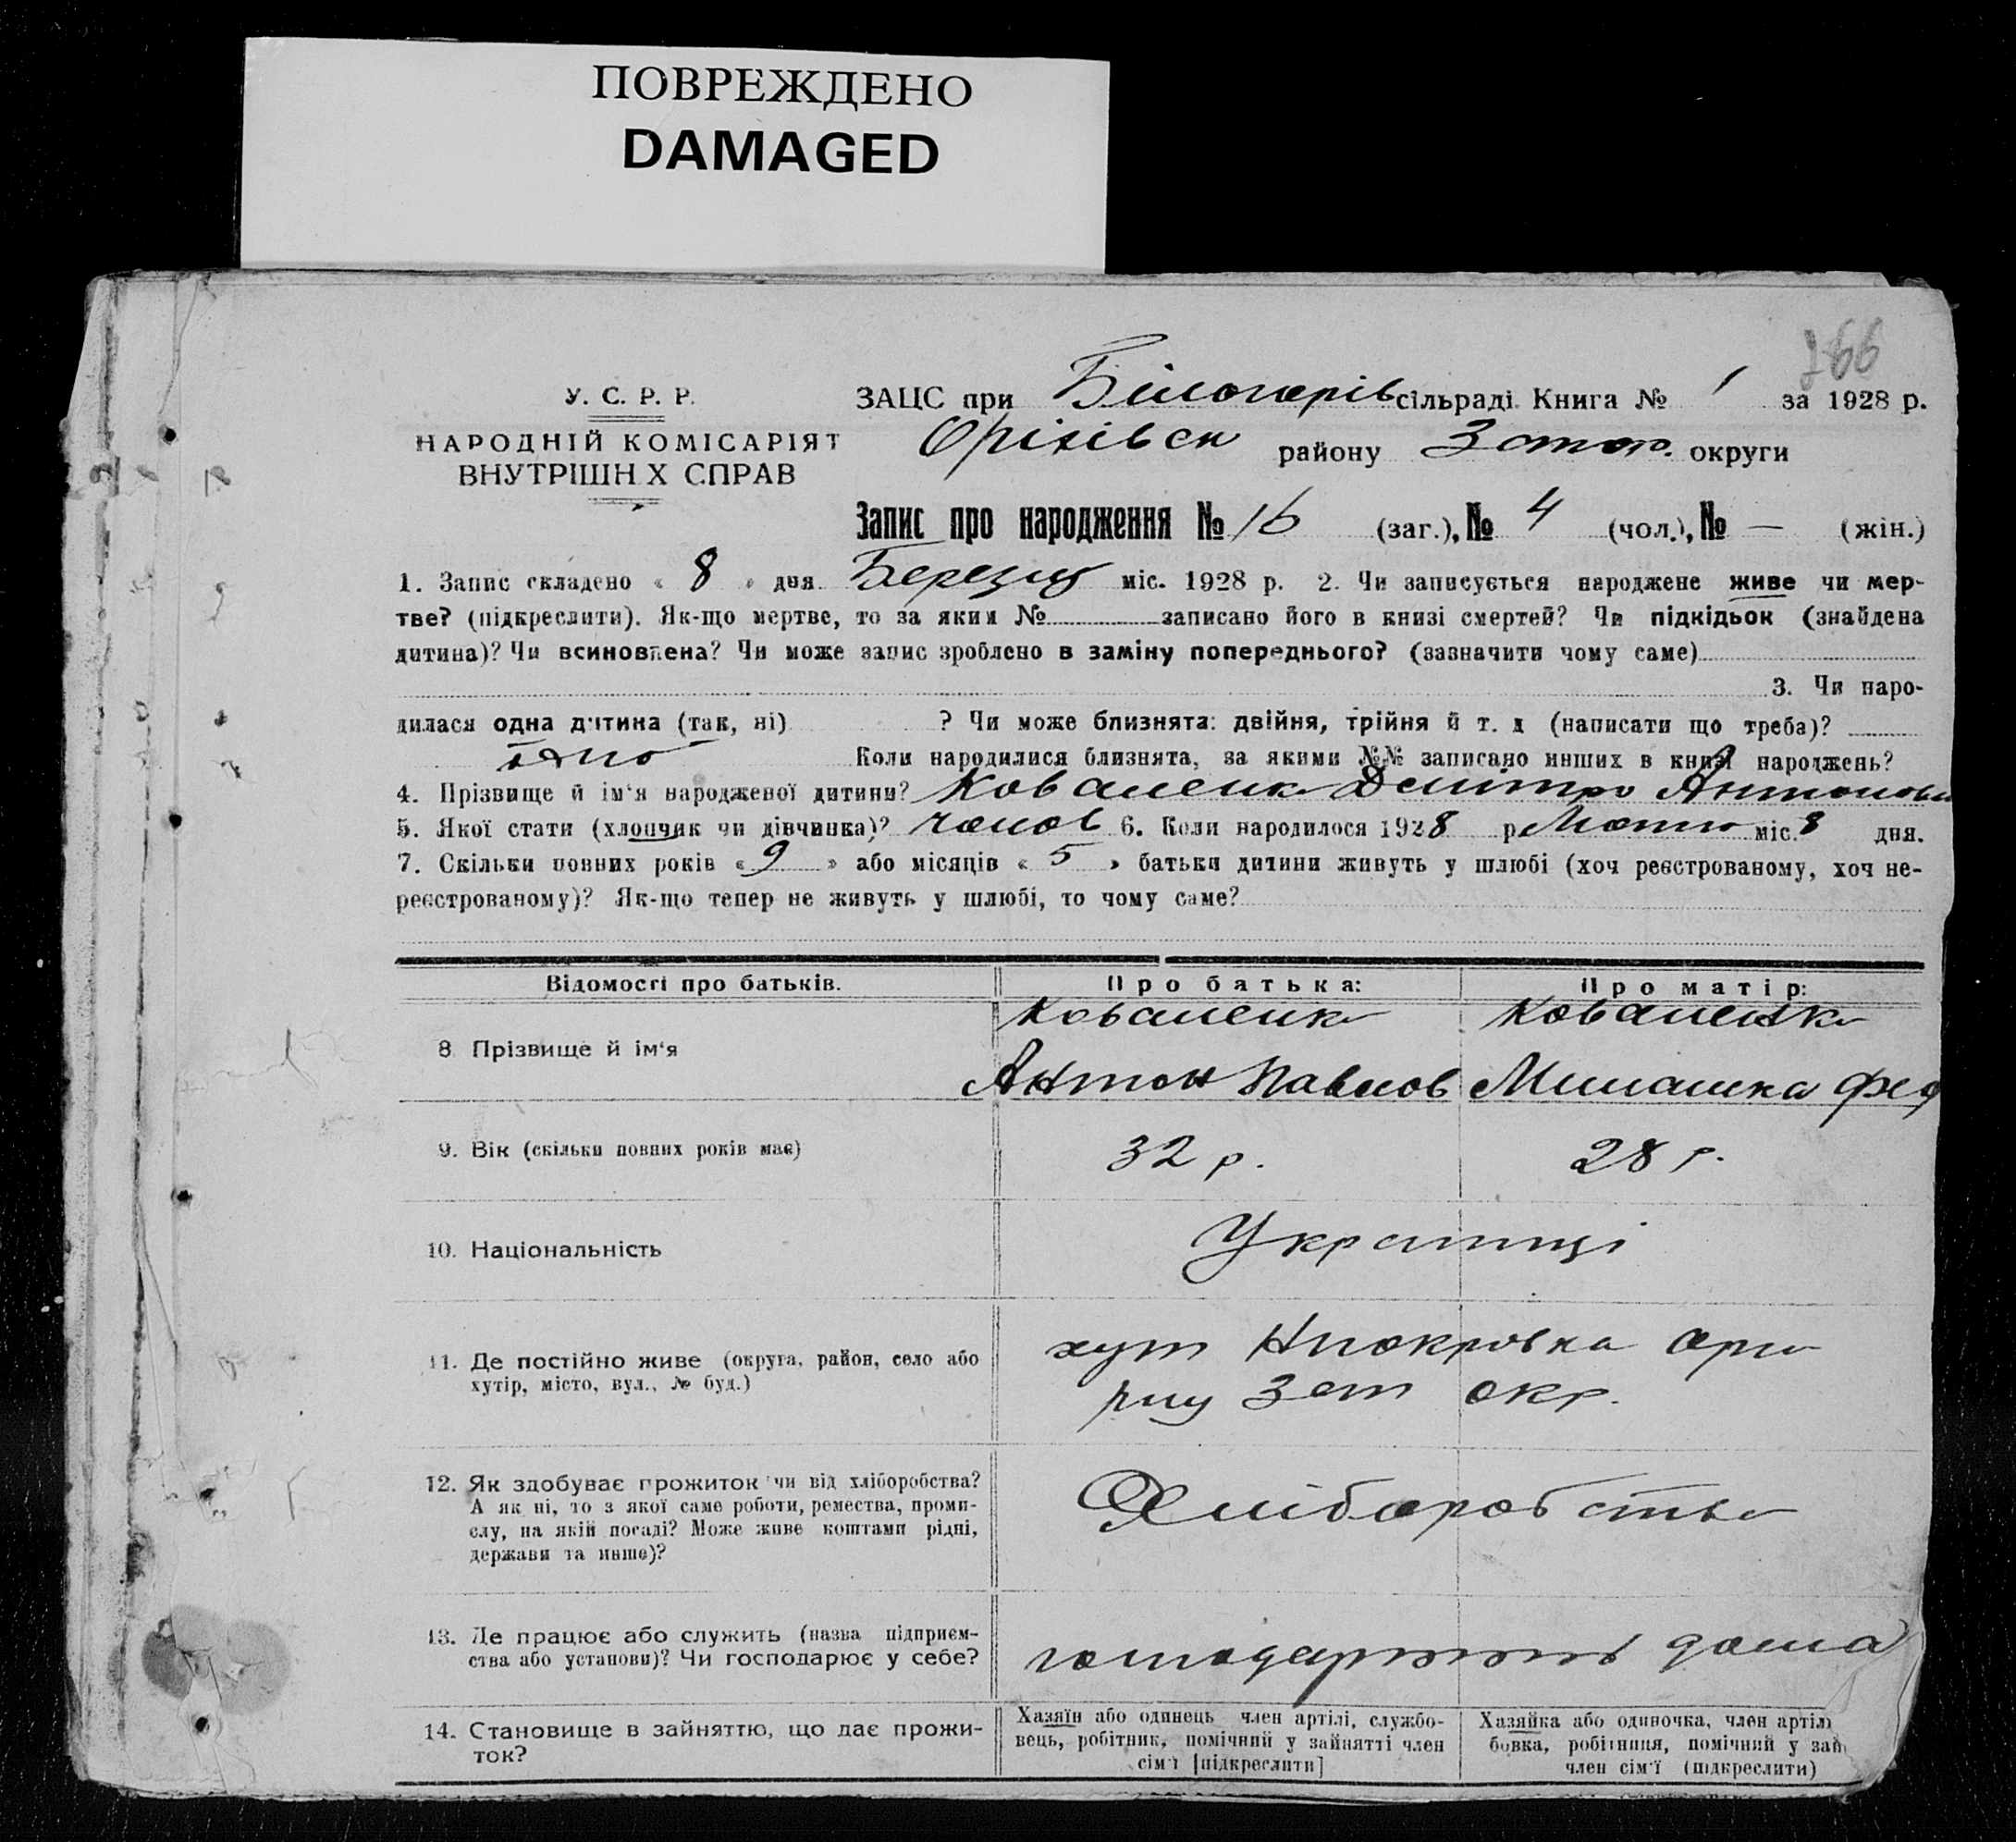 ПОВРЕЖДЕНО
DAMAGED
766
У. С. Р. Р.
НАРОДНІЙ КОМІСАРІЯТ
ВНУТРІШН Х СПРАВ
ЗАЦС при Білогорів сільраді Книга № 1 за 1928 р.
Оріхівськ району Запор. округи
Запис про народження № 16 (заг.), № 4 (чол.), № — (жін.)
1. Запис складено « 8 » дня Березня міс. 1928 р. 2. Чи записується народжене живе чи мер-
тве? (підкреслити). Як-що мертве, то за яким № записано його в книзі смертей? Чи підкідьок (знайдена
дитина)? Чи всиновлена? Чи може запис зроблено в заміну попереднього? (зазначити чому саме)
3. Чи наро-
дилася одна дитина (так, ні) ? Чи може близнята: двійня, трійня й т. д (написати що треба)?
одно Коли народилися близнята, за якими №№ записано инших в книзі народжень?
4. Прізвище й ім'я народженої дитини? Коваленко Дмітро Антонов
5. Якої стати (хлопчик чи дівчинка)? чолов 6. Коли народилося 1928 р Лютого міс. 8 дня.
7. Скільки повних років « 9 » або місяців « 5 » батьки дитини живуть у шлюбі (хоч реєстрованому, хоч не-
реєстрованому)? Як-що тепер не живуть у шлюбі, то чому саме?
Відомості про батьків. Про батька: Про матір:
8 Прізвище й ім'я
Коваленко Коваленко
Антон Павлов Милашка Фед
9. Вік (скільки повних років має) 32 р. 28 р.
10. Національність Українці
11. Де постійно живе (округа, район, село або
хутір, місто, вул., № буд.)
хут Нпокровка Оріх
р-ну Зап окр.
12. Як здобуває прожиток чи від хліборобства?
А як ні, то з якої саме роботи, ремества, проми-
слу, на якій посаді? Може живе коштами рідні,
держави та инше)?
Хліборобство
13. Де працює або служить (назва підприєм-
ства або установи)? Чи господарює у себе?
господарюють дома
14. Становище в зайняттю, що дає прожи-
ток?
Хазяїн або одинець член артілі, службо-
вець, робітник, помічний у зайнятті член
сім'ї [підкреслити]
Хазяйка або одиночка, член артіл
бовка, робітниця, помічний у зай
член сім'ї (підкреслити)